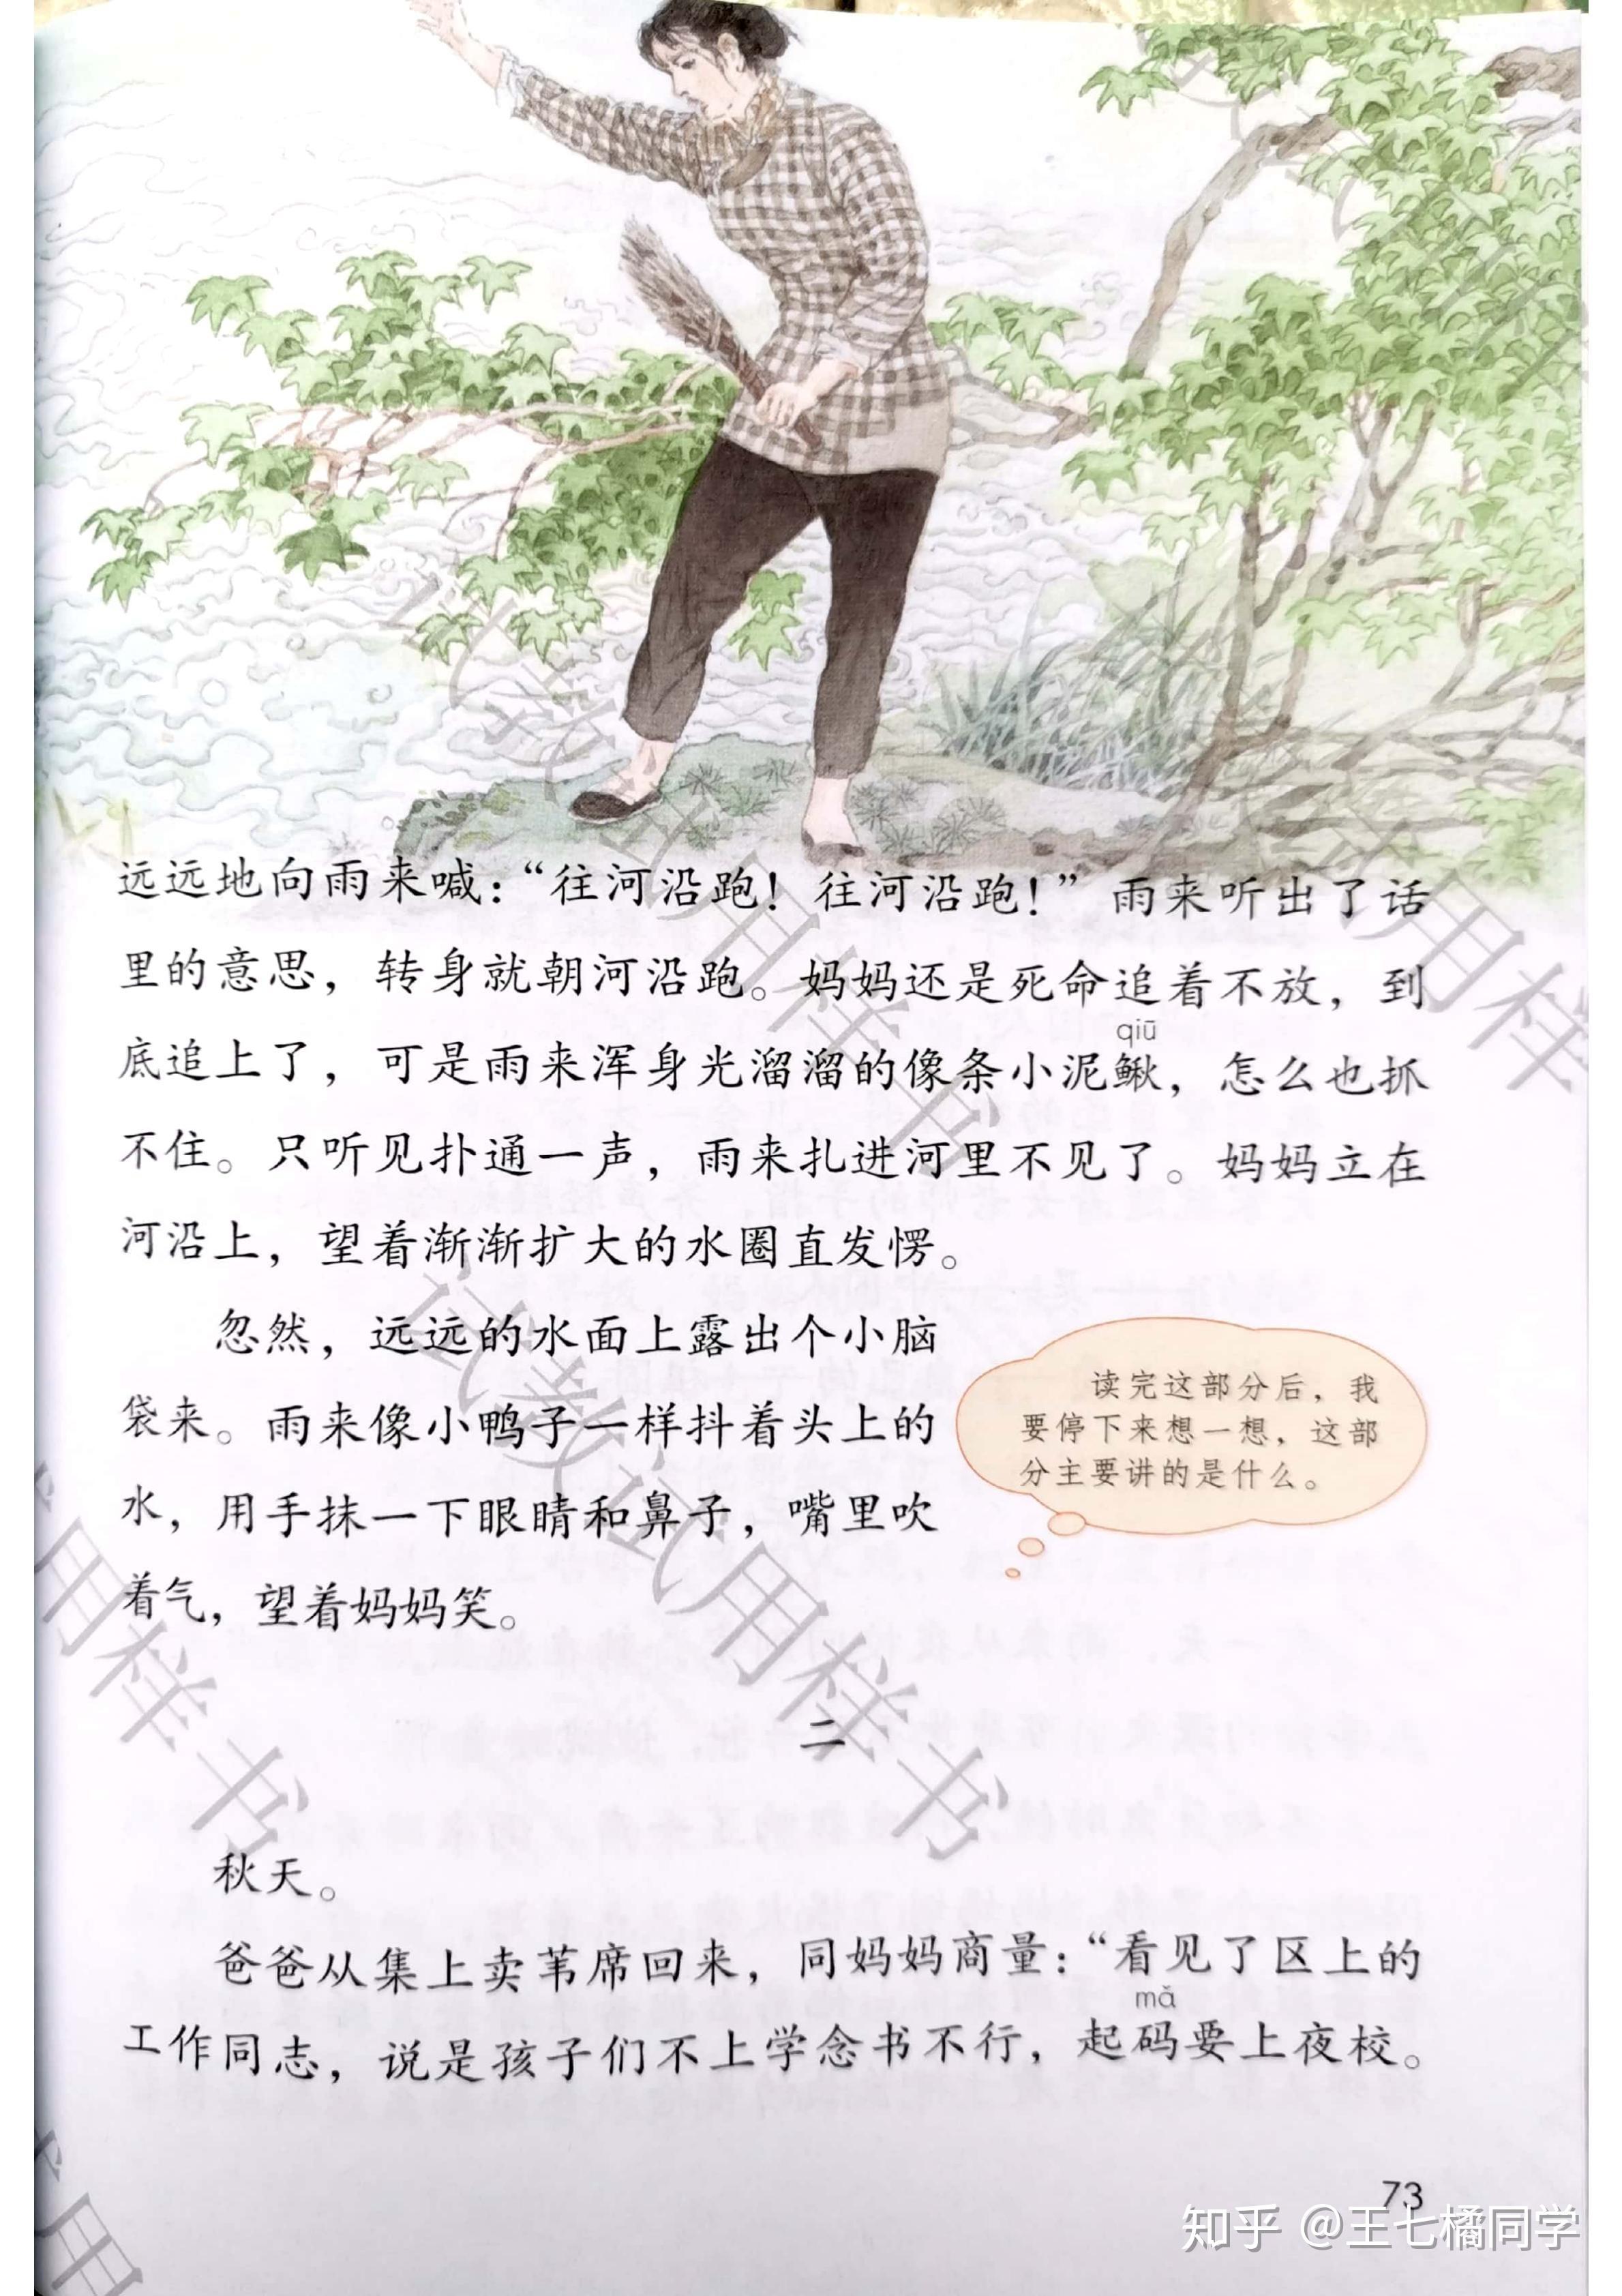 远远地向雨来喊：“往河沿跑！往河沿跑！”雨来听出了话
里的意思，转身就朝河沿跑。妈妈还是死命追着不放，到
qiū
底追上了，可是雨来浑身光溜溜的像条小泥鳅，怎么也抓
不住。只听见扑通一声，雨来扎进河里不见了。妈妈立在
河沿上，望着渐渐扩大的水圈直发愣。
忽然，远远的水面上露出个小脑
袋来。雨来像小鸭子一样抖着头上的
水，用手抹一下眼睛和鼻子，嘴里吹
着气，望着妈妈笑。
读完这部分后，我
要停下来想一想，这部
分主要讲的是什么。
二
秋天。
爸爸从集上卖苇席回来，同妈妈商量：“看见了区上的
mǎ
工作同志，说是孩子们不上学念书不行，起码要上夜校。
73
知乎 @王七橘同学
试教试用样书
试教试用样书
试用样书
试用样书